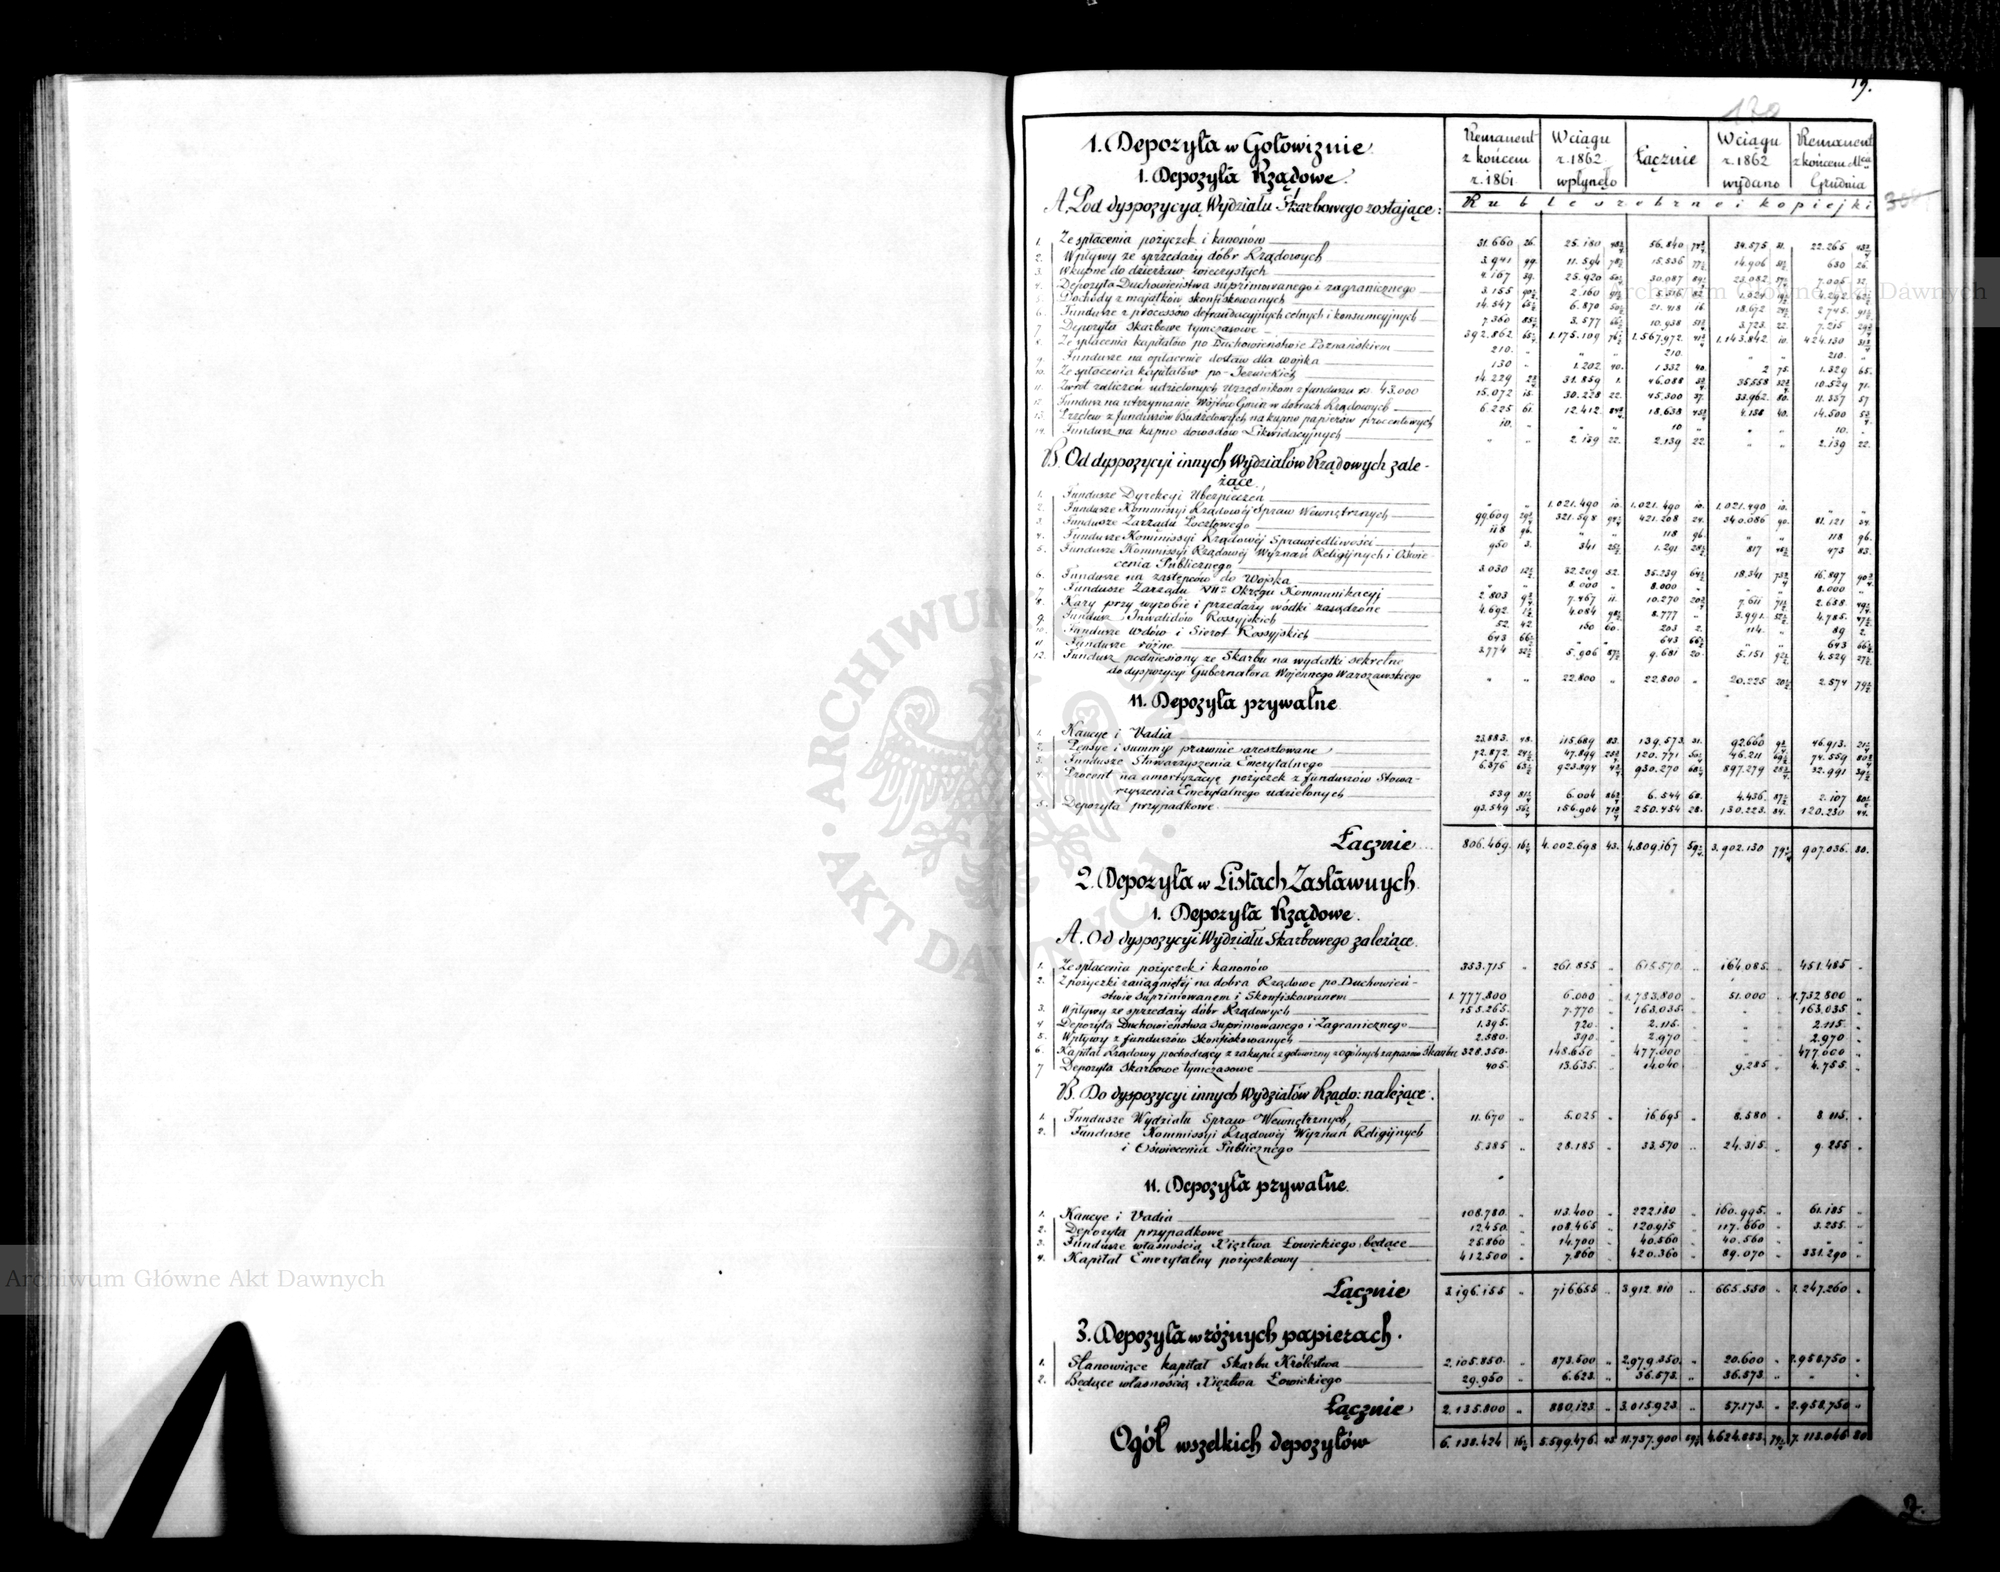 19.
1. Depozyta w Gotowiznie.
1. Depozyta Rządowe.
A. Pod dyspozycyą Wydziału Skarbowego zostające:
Remanent z końcem r. 1861
W ciągu r. 1862 wpłynęło
Łącznie
W ciągu r. 1862 wydano
Remanent z końcem Mca Grudnia
Ruble srebrne i kopiejki
1. Ze spłacenia pożyczek i kanonów 31.660 26. 25.180 56.840 34.575 22.265
2. Wpływy ze sprzedaży dóbr Rządowych 3.941 99. 11.594 15.536 14.906 630 26.
3. Wkupne do dzierżaw wieczystych 4.167 39. 25.920 30.087 23.082 7.005
4. Depozyta Duchowieństwa suprimowanego i zagranicznego 3.155 2.160
5. Dochody z majątków skonfiskowanych 14.547 6.870 21.418 18.672 2.745
6. Fundusze z processów defraudacyjnych celnych i konsumcyjnych 7.360 3.577 10.938 3.723 22. 7.215
7. Depozyta Skarbowe tymczasowe 392.862 1.175.109 1.567.972 1.143.842 10. 424.130
8. Ze spłacenia kapitałów po Duchowieństwie Poznańskiem 210. " " " 210. " " 210. "
9. Fundusze na opłacenie dostaw dla wojska 130 " 1.202 40. 1.332 40. 2 75. 1.329 65.
10. Ze spłacenia kapitałów po-Jezuickich 14.229 31.859 1. 46.088 35.558 10.529 71.
11. Zwrot zaliczeń udzielonych Urzędnikom z funduszu rs. 43.000 15.072 15. 30.228 22. 45.300 37. 33.962. 80. 11.337 57
12. Fundusz na utrzymanie Wójtów Gmin w dobrach Rządowych 6.225 61. 12.412 18.638 4.138 40. 14.500
13. Przelew z funduszów Budżetowych na kupno papierów procentowych 10. " " " 10 " " " 10. "
14. Fundusz na kupno dowodów Likwidacyjnych " " 2.139 22. 2.139 22. " " 2.139 22.
B. Od dyspozycyi innych Wydziałów Rządowych zale-
żące.
1. Fundusze Dyrekcyi Ubezpieczeń " " 1.021.490 10. 1.021.490 10. 1.021.490 10. " "
2. Fundusze Kommissyi Rządowéj Spraw Wewnętrznych 99.609 321.598 421.208 24. 340.086 90. 81.121 34.
3. Fundusze Zarządu Pocztowego 118 96. " " 118 96. " " 118 96.
4. Fundusze Kommissyi Rządowéj Sprawiedliwości 950 3. 341 1.291 817 473 83.
5. Fundusze Kommissyi Rządowéj Wyznań Religijnych i Oświe-
cenia Publicznego 3.030 32.209 52. 35.239 18.341 16.897
6. Fundusze na zastępców do Wojska " " 8.000 " 8.000 " " " 8.000 "
7. Fundusze Zarządu VIIgo Okręgu Kommunikacyj 2.803 7.467 11. 10.270 7.611 2.658
8. Kary przy wyrobie i przedaży wódki zasądzone 4.692 4.084 8.777 " 3.991 4.785
9. Fundusz Inwalidów Rossyjskich 52. 42. 150 60. 203 2. 114. " 89 2.
10. Fundusze wdów i Sierot Rossyjskich 643 66½ " " 643 66½ " " 643 66½
11. Fundusze różne 3.774 5.906 9.681 20. 5.151 4.529
12. Fundusz podniesiony ze Skarbu na wydatki sekretne
do dyspozycyi Gubernatora Wojennego Warszawskiego " " 22.800 " 22.800 " 20.225 2.574
II. Depozyta prywatne
1. Kaucye i Vadia 23.883. 48. 115.689 83. 139.573. 31. 92.660 46.913.
2. Pensye i summy prawnie aresztowane 72.872. 47.899 120.771 46.211 74.559
3. Fundusze Stowarzyszenia Emerytalnego 6.376 923.894 930.270 897.279 32.991
4. Procent na amortyzacyę pożyczek z funduszów Stowa-
rzyszenia Emerytalnego udzielonych 539 6.004 6.544 68. 4.436. 2.107
5. Depozyta przypadkowe 93.549 156.904 250.454 28. 130.223. 84. 120.230 44.
Łącznie 806.469. 4.002.698 43. 4.809.167 3.902.130 907.036. 80.
2. Depozyta w Listach Zastawnych.
1. Depozyta Rządowe.
A. Od dyspozycyi Wydziału Skarbowego zależące.
1. Ze spłacenia pożyczek i kanonów 353.715 " 261.855 " 615.570. " 164.085. " 451.485 "
2. Z pożyczki zaciągniętéj na dobra Rządowe po Duchowień-
stwie Suprimowanem i Skonfiskowanem 1.777.800 6.000 " 1.783.800 " 51.000 " 1.732.800 "
3. Wpływy ze sprzedaży dóbr Rządowych 155.265. 7.770 " 163.035. " " " 163.035 "
4. Depozyta Duchowieństwa suprimowanego i Zagranicznego 1.395. 720. " 2.115. " " " 2.115. "
5. Wpływy z funduszów Skonfiskowanych 2.580. 390. " 2.970 " " " 2.970 "
6. Kapitał Rządowy pochodzący z zakupu z gotowizny z ogólnych zapasów Skarbu 328.350. 148.650 " 477.000 " " " 477.000 "
7. Depozyta Skarbowe tymczasowe 405. 13.635. " 14.040 " 9.285 " 4.755. "
B. Do dyspozycyi innych Wydziałów Rządo: należące.
1. Fundusze Wydziału Spraw Wewnętrznych 11.670 " 5.025 " 16.695 " 8.580 " 8.115. "
2. Fundusze Kommissyi Rządowéj Wyznań Religijnych
i Oświecenia Publicznego 5.385 " 28.185 " 33.570 " 24.315. " 9.255 "
II. Depozyta prywatne.
1. Kaucye i Vadia 108.780. " 113.400 " 222.180 " 160.995. " 61.185 "
2. Depozyta przypadkowe 12.450. " 108.465 " 120.915 " 117.660 " 3.255. "
3. Fundusze własnością Xięztwa Łowickiego będące 25.860 " 14.700 " 40.560 " 40.560 " " "
4. Kapitał Emerytalny pożyczkowy 412.500 " 7.860 " 420.360 " 89.070 " 331.290 "
Łącznie 3.196.155 " 716.655 " 3.912.810 " 665.550 " 3.247.260 "
3. Depozyta w różnych papierach.
1. Stanowiące kapitał Skarbu Królestwa 2.105.850. " 873.500 " 2.979.350. " 20.600 " 2.958.750 "
2. Będące własnością Xięztwa Łowickiego 29.950 " 6.623. " 36.573. " 36.573 " " "
Łącznie 2.135.800 " 880.123. " 3.015.923. " 57.173. " 2.958.750 "
Ogół wszelkich depozytów 6.138.424 5.599.476. 43 11.737.900 4.624.853. 7.113.046 80
Archiwum Główne Akt Dawnych
Archiwum Główne Akt Dawnych
ARCHIWUM GŁÓWNE AKT DAWNYCH